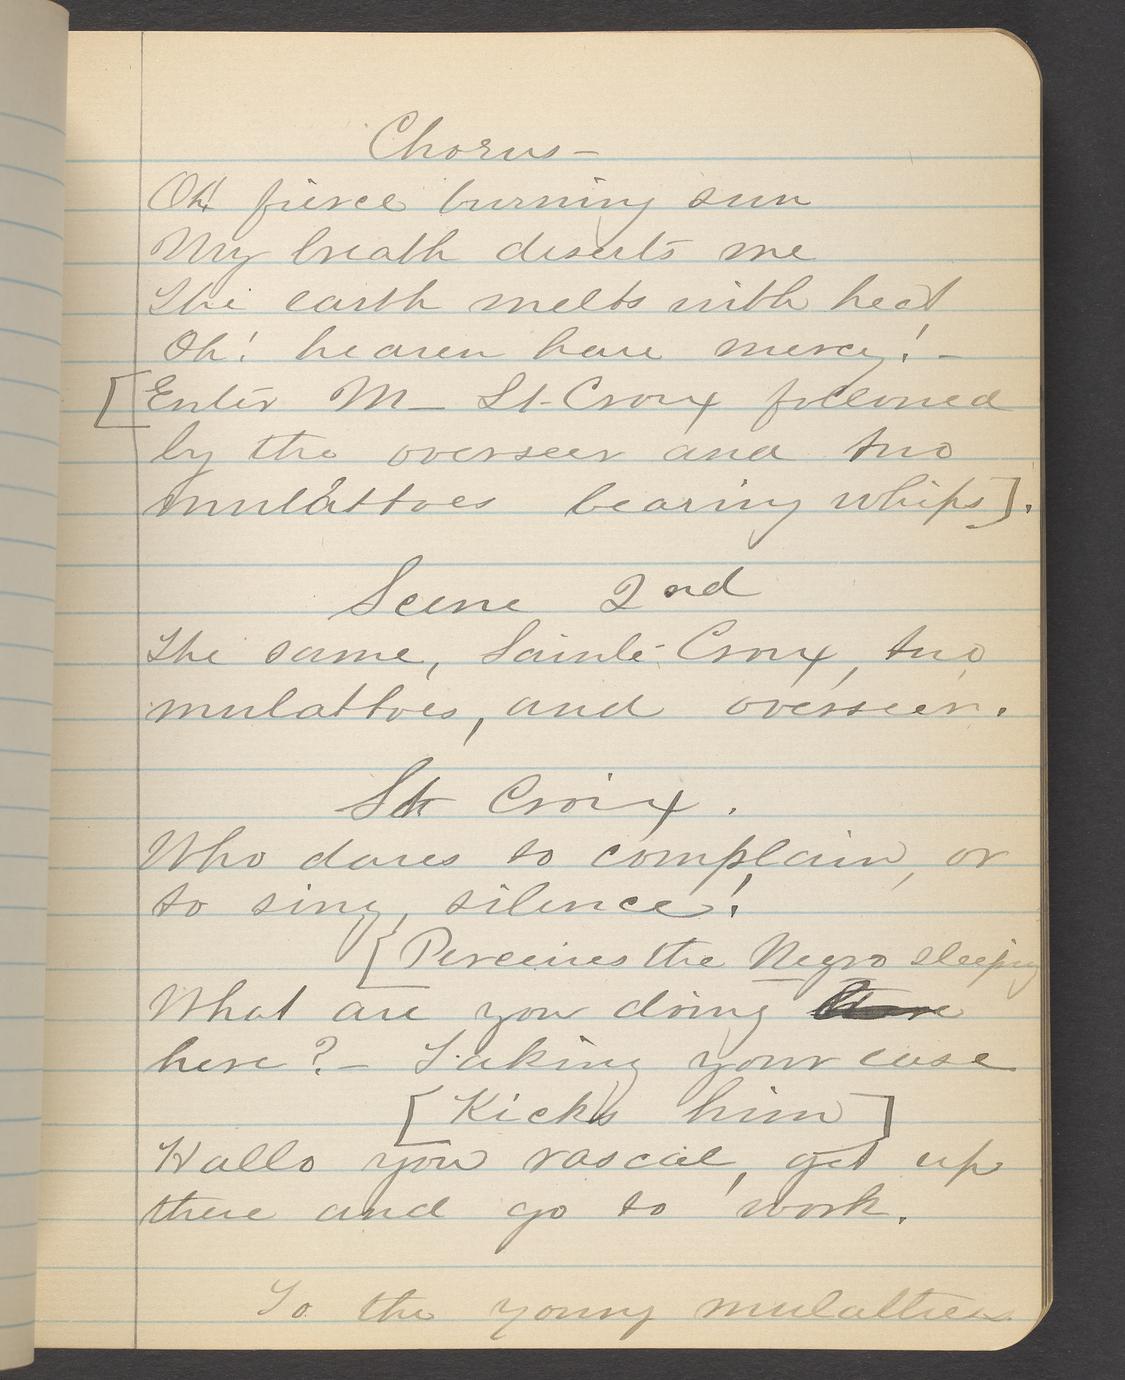 Chorus-
Oh! fierce burning sun
My breath deserts me
The earth melts with heat
Oh! heaven have mercy! -
[Enter M- St-Croix followed
by the overseer and two
mulattoes bearing whips].
Scene 2nd
The same, Sainte-Croix, two
mulattoes, and overseer.
St Croix.
Who dares to complain, or
to sing, silence!
[Perceives the Negro sleeping
What are you doing
here? - Taking your ease
[Kicks him]
Hallo you rascal, get up
there and go to work.
To the young mulattress